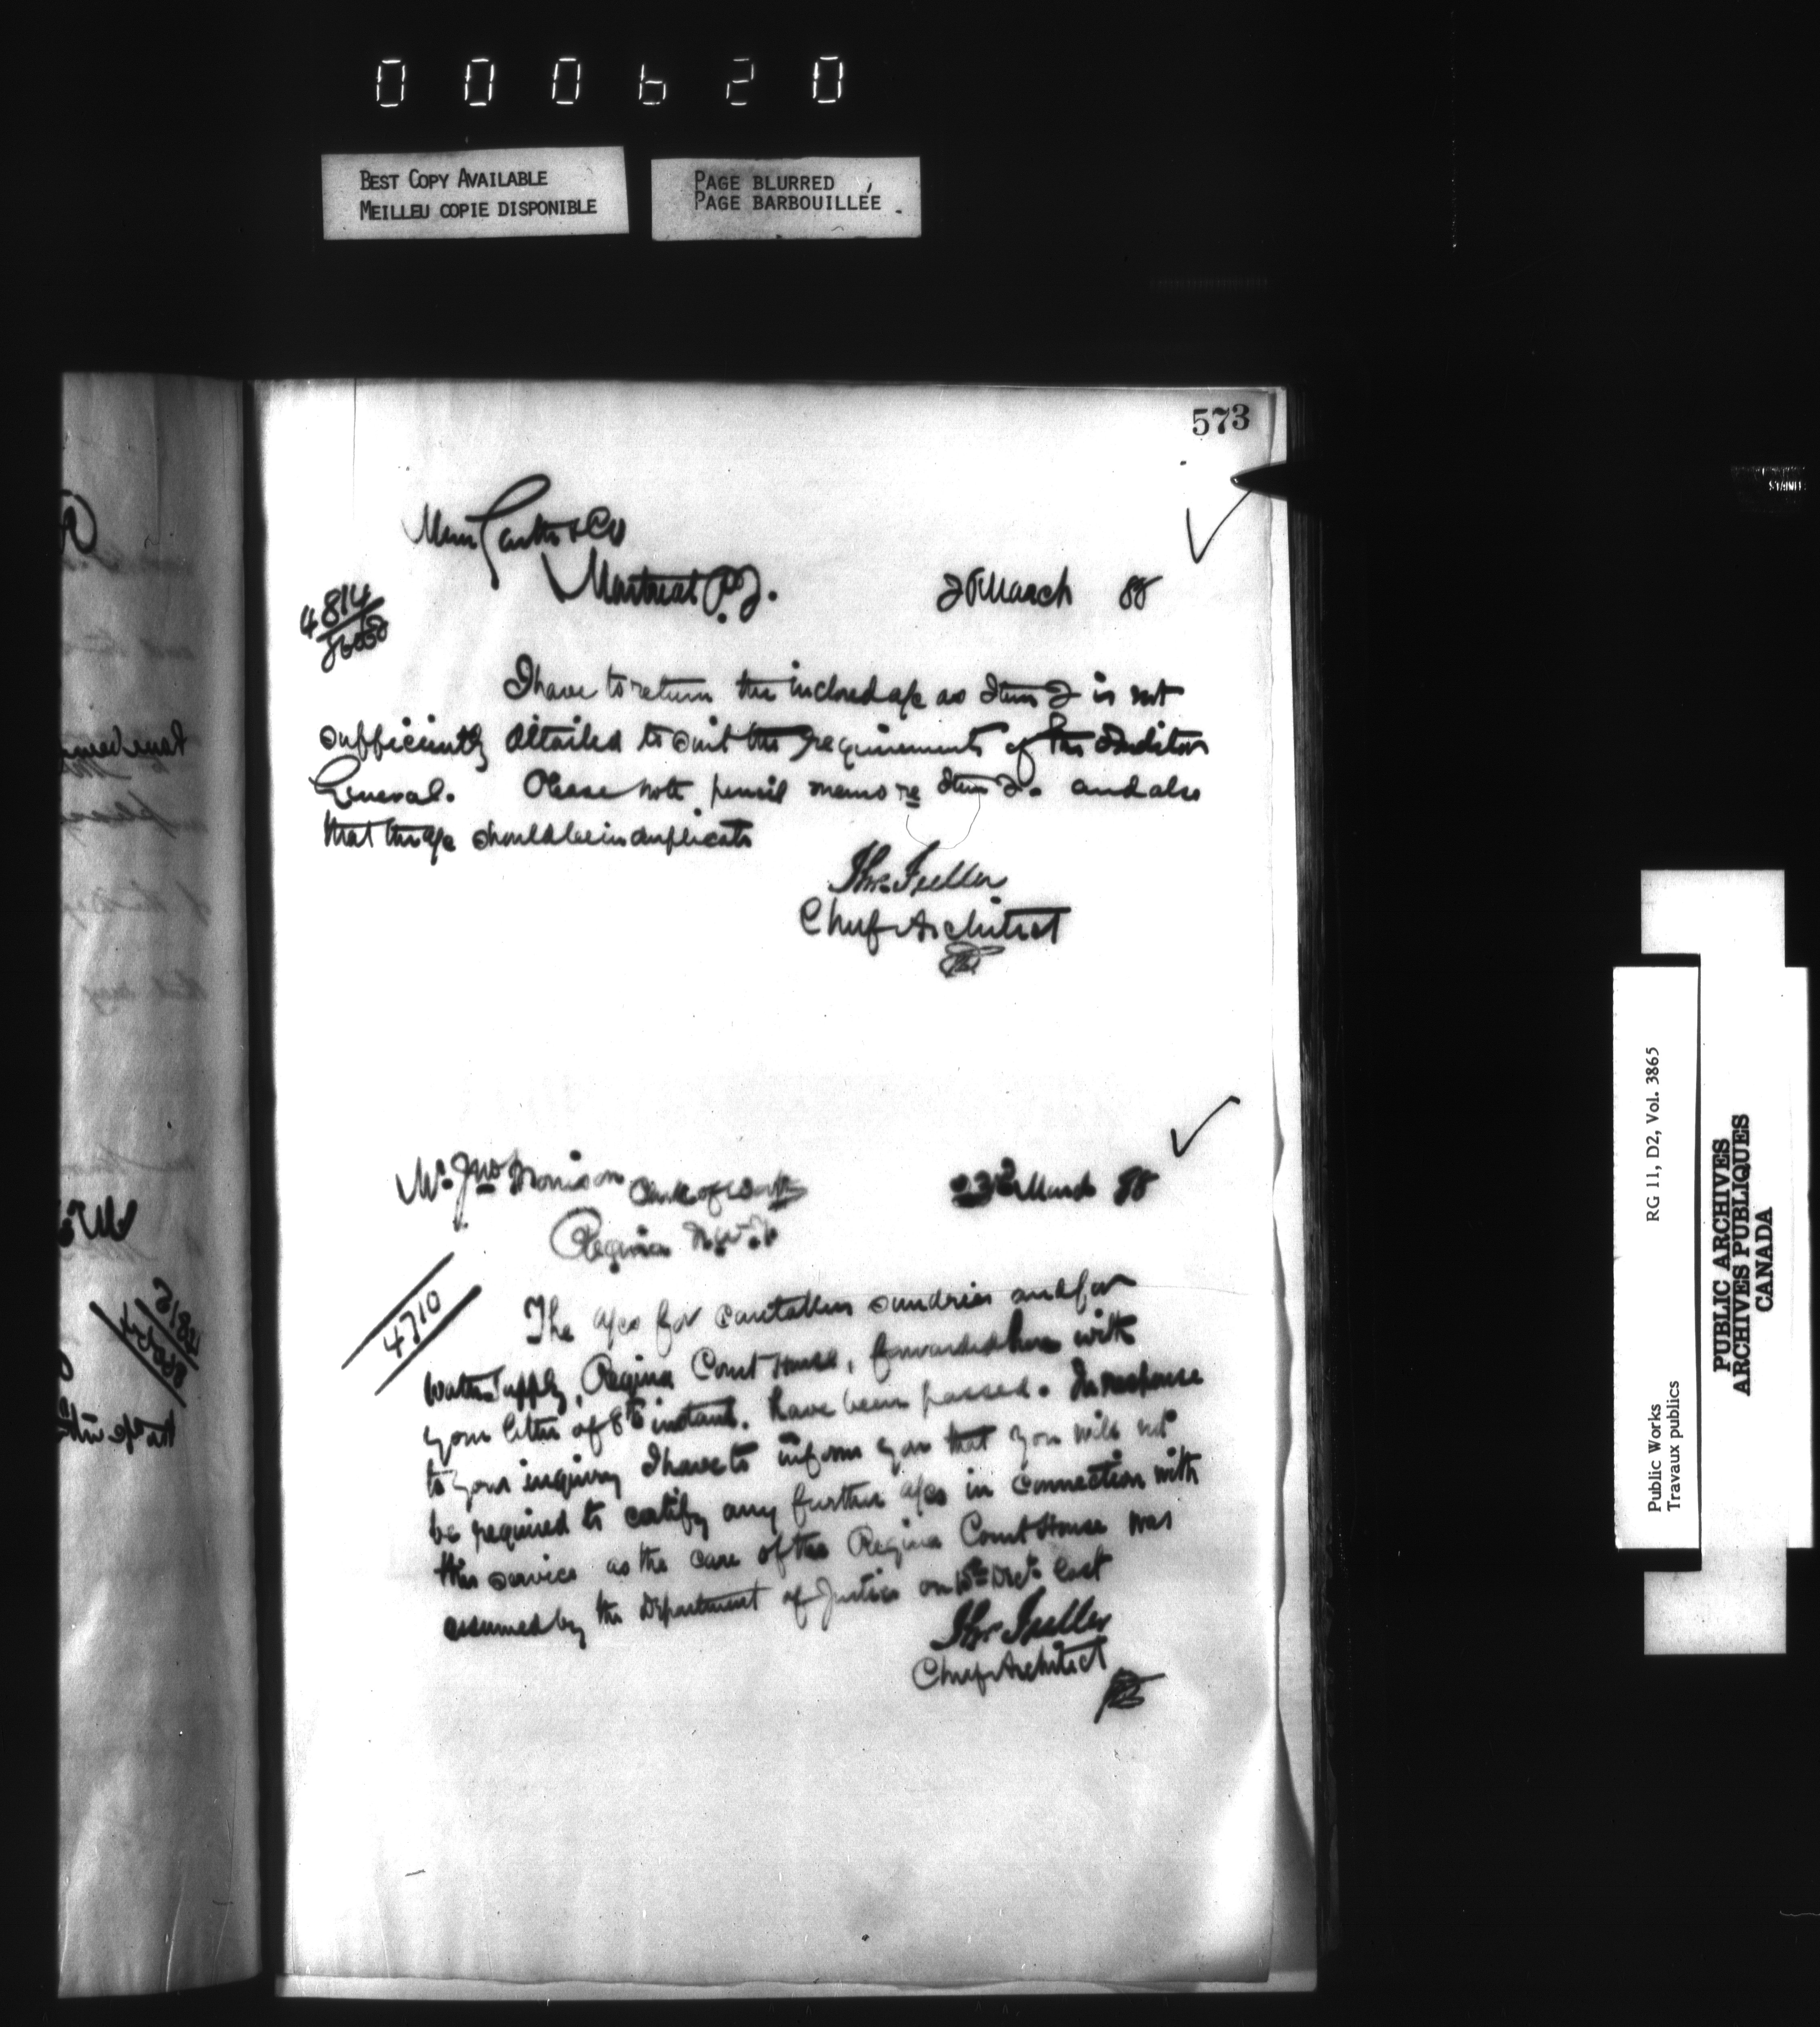 000620
BEST COPY AVAILABLE
MEILLEU COPIE DISPONIBLE
PAGE BLURRED
PAGE BARBOUILLÉE
573
Messrs Garth & Co
Montreal P.Q.
March 88
4814
I have to return the inclosed a/c as Item 2 is not
sufficiently detailed to suit the requirements of the Auditor
General. Please note pencil memo re Item 2. and also
that the a/c should be in duplicate
Thos. Fuller
Chief Architect
Mr. Jno Clerk of Works
23rd March 88
Regina N.W.T.
4710
The a/cs for caretakers sundries and for
water supply, Regina Court House, forwarded here with
your letter of 8th instant. have been passed. In response
to your inquiry I have to inform you that you will not
be required to certify any further a/cs in connection with
this service as the care of the Regina Court House was
assumed by the Department of Justice on Decr. last
Thos. Fuller
Chief Architect
RG 11, D2, Vol. 3865
Public Works
Travaux publics
PUBLIC ARCHIVES
ARCHIVES PUBLIQUES
CANADA